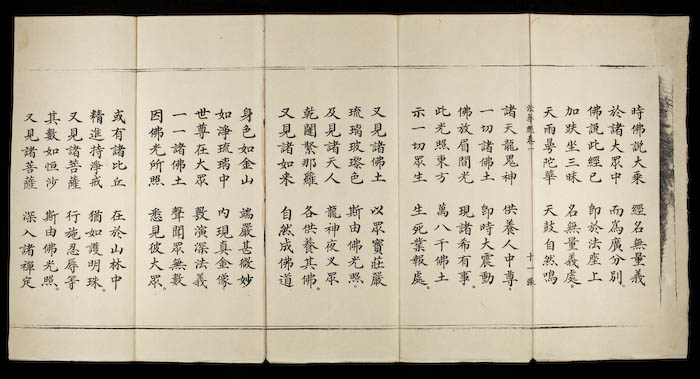 時佛說大乘　經名無量義
於諸大眾中　而為廣分別。
佛說此經已　即於法座上
加趺坐三昧　名無量義處。
天雨曼陀華　天鼓自然鳴
法華經卷一　十一張
諸天龍鬼神　供養人中尊。
一切諸佛土　即時大震動
佛放眉間光　現諸希有事。
此光照東方　萬八千佛土
示一切眾生　生死業報處。
又見諸佛土　以眾寶莊嚴
琉璃玻瓈色　斯由佛光照。
及見諸天人　龍神夜叉眾
乾闥緊那羅　各供養其佛。
又見諸如來　自然成佛道
身色如金山　端嚴甚微妙
如淨琉璃中　內現真金像
世尊在大眾　敷演深法義
一一諸佛土　聲聞眾無數
因佛光所照　悉見彼大眾。
或有諸比丘　在於山林中
精進持淨戒　猶如護明珠。
又見諸菩薩　行施忍辱等
其數如恒沙　斯由佛光照。
又見諸菩薩　深入諸禪定